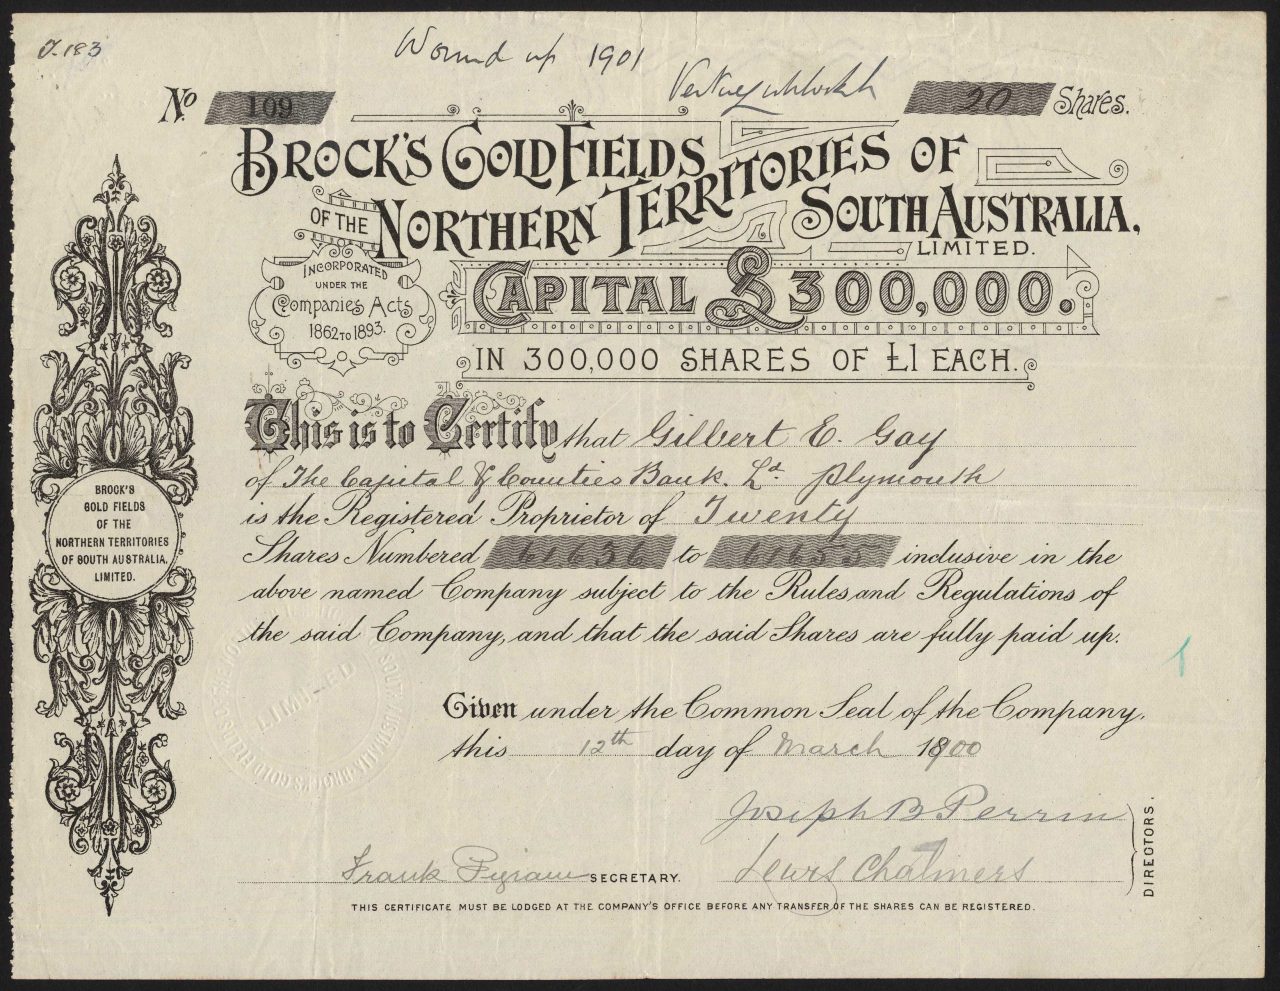 J.183
Wound up 1901
No 109
20 Shares.
BROCK'S GOLD FIELDS
OF THE NORTHERN TERRITORIES OF
SOUTH AUSTRALIA,
LIMITED.
INCORPORATED
UNDER THE
Companies Acts
1862 TO 1893.
CAPITAL £300,000.
IN 300,000 SHARES OF £1 EACH.
This is to Certify that Gilbert E. Gay
of The Capital & Counties Bank. Ld. Plymouth
is the Registered Proprietor of Twenty
Shares Numbered 61636 to 61655 inclusive in the
above named Company subject to the Rules and Regulations of
the said Company, and that the said Shares are fully paid up.
Given under the Common Seal of the Company,
this 12th day of March 1900
Joseph B Perrin
Lewis Chalmers
DIRECTORS.
Frank SECRETARY.
THIS CERTIFICATE MUST BE LODGED AT THE COMPANY'S OFFICE BEFORE ANY TRANSFER OF THE SHARES CAN BE REGISTERED.
BROCK'S
GOLD FIELDS
OF THE
NORTHERN TERRITORIES
OF SOUTH AUSTRALIA,
LIMITED.
LIMITED